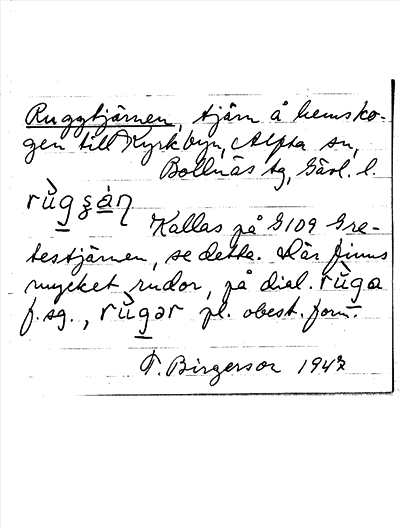 Ruggtjärnen, tjärn å hemsko-
gen till Kyrkbyn, Alfta sn,
Bollnäs tg, Gävl. l.
Kallas på G109 Gre-
testjärnen, se detta. Där finns
mycket rudor, på dial. rùga
f. sg., rùgər pl. obest. form.
F. Birgersson 1947